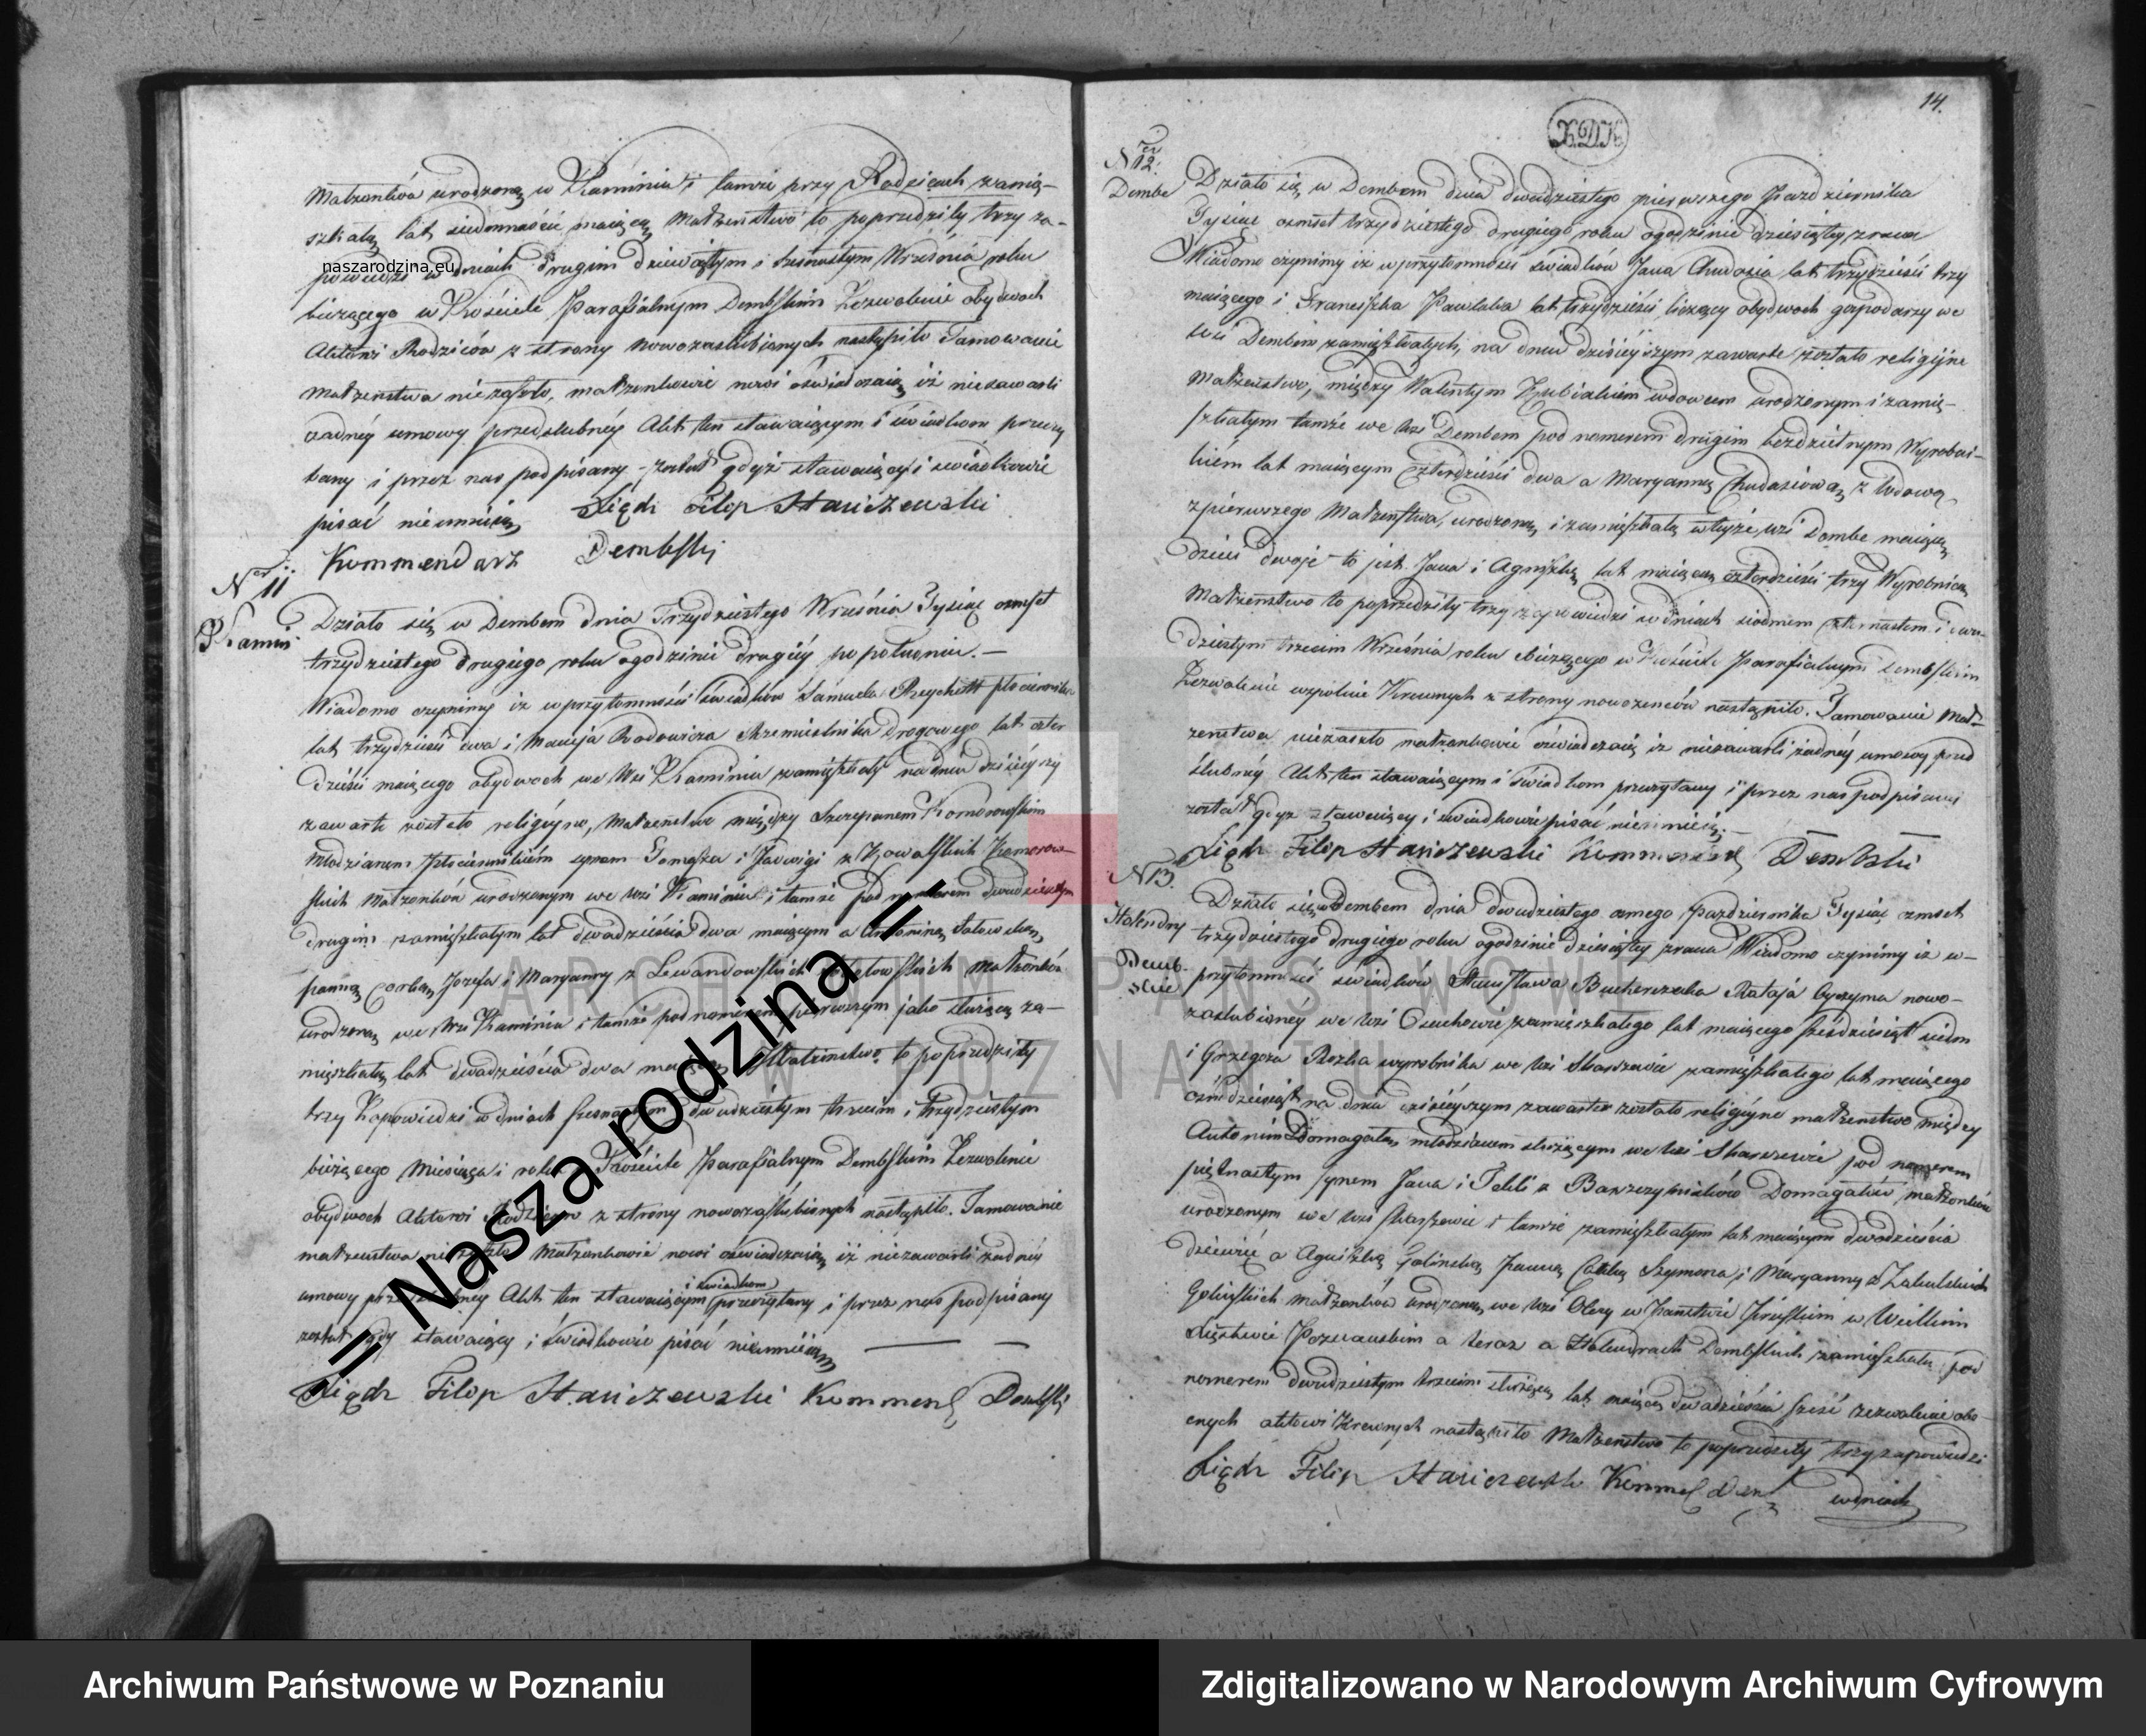 małżonków urodzoną w Kaminiu i tamże przy Rodzicach zamię-
szkałą lat siedmnaście maiącą małżeństwo to poprzedziły trzy za-
powiedzi w dniach drugim dziewiątym i szesnastym Września roku
naszarodzina.eu
bieżącego w Kościele Parafialnym Dembskim Zezwolenie obydwoch
Aktowi Rodziców z strony nowozaślubionych nastąpiło Tamowanie
małżeństwa niezaszło, małżonkowie nowi oświadczaią iż niezawarli
żadnéy umowy przedślubnéy Akt ten stawaiącym i świadkom przeczy
tany i przez nas podpisany został gdyż stawaiący i świadkowie
pisać nieumieią Xiądz Filip Staniszewski
Kommendarz Dembski
Nr 11
Kamin
Działo się w Dembem dnia Trzydziestego Września Tysiąc ośmset
trzydziestego drugiego roku ogodzinie drugiéy popołudniu. —
Wiadomo czyniemy iż wprzytomności świadków Samuela
lat trzydzieści dwa i Macieja Radowicza Rzemieślnika Drogowego lat czter
dzieści maiącego obydwoch we Wsi Kaminiu zamięszkałych na dniu dzisieyszy
zawarte zostało religiyne, Małżeństwo między Szczepanem Komorowskim
Młodzianem synem Tomasza i Jadwigi z Kowalskich Komorow-
skich Małżonków urodzonym we wsi Kaminiu i tamże pod numerem dwudziestym
drugim zamięszkałym lat dwadzieścia dwa maiącym a Antoniną
panną Corką Jozefa i Maryanny z Lewandowskich małżonków
urodzoną we Wsi Kaminiu i tamże pod numerem pierwszym jako służącą za-
mięszkałą lat dwadzieścia dwa maiącą Małżeństwo to poprzedziły
trzy Zapowiedzi w dniach szesnastym dwudziestym trzecim i Trzydziestym
bieżącego Miesiąca i roku Kościele Parafialnym Dembskim Zezwolenie
obydwoch Aktowi Rodziców z strony nowozaślubionych nastąpiło. Tamowanie
małżeństwa niezaszło Małżonkowie nowi oświadczaią iż niezawarli żadnéy
umowy przedślubney Akt ten stawaiącym i świadkom przeczytany i przez nas podpisany
został gdy stawaiący i świadkowie pisać nieumieią
Xiądz Filip Staniszewski Kommend Dembski
= Nasza rodzina =
14.
K.D.K.
Nr 12.
Dembe
Działo się w Dembem dnia dwudziestego pierwszego Pazdziernika
Tysiąc ośmset trzydziestego drugiego roku ogodzinie dziesiątey zrana
Wiadomo czynimy iż wprzytomności świadków Jana Chudasia lat trzydzieści trzy
maiącego i Franciszka Pawlaka lat trzydzieści liczący obydwoch gospodarzy we
wsi Dembem zamięszkałych, na dniu dzisieyszym zawarte zostało religijne
Małżeństwo, między Walentym wdowcem urodzonym i zamię-
szkałym tamże we wsi Dembem pod numerem drugim bezdzietnym Wyrobni-
kiem lat maiącym czterdzieści dwa a Maryanną Chudasiową z Wdową
zpierwszego Małżeństwa, urodzoną i zamięszkałą wteyże wsi Dembe maiącą
dzieci dwoje to jest Jana i Agniszkę lat maiącą czterdzieści trzy Wyrobnicą
Małżeństwo to poprzedziły trzy zapowiedzi w dniach siodmem czternastem i dwu-
dziestym trzecim Września roku bieżącego w Kościele Parafialnym Dembskim
Zezwolenie wspolnie Krewnych z strony nowożeńców nastąpiło. Tamowanie Mał-
żeństwa niezaszło małżonkowie oświadczaią iż niezawarli żadnéy umowy przed
ślubnéy Akt ten stawaiącym i świadkom przeczytany i przez nas podpisany
został gdyż stawaiący i świadkowie pisać nieumieią. —
Xiądz Filip Staniszewski Kommend Dembski
N 13.
Holendry
Demb-
skie
Działo się w Dembem dnia dwudziestego osmego Pazdziernika Tysiąc ośmset
trzydziestego drugiego roku ogodzinie dziesiątey zrana Wiadomo czynimy iż w-
przytomności świadków Stanisława Rataja Oyczyma nowo-
zaślubionéy we wsi Osuchowie zamieszkałego lat maiącego sześdziesiąt siedm
i Grzegorza wyrobnika we wsi Skarszewie zamięszkałego lat maiącego
ośmdziesiąt na dniu dzisieyszym zawarte zostało religiyne małżeństwo między
Antonim Domagałą młodzianem służącym we wsi Skarszewie pod numerem
piętnastym synem Jana i Tekli z Domagałów małżonków
urodzonym we wsi Skarszewie i tamże zamięszkałym lat maiącym dwadzieścia
dziewięć a Agniszką Golinską Panną Corką Szymona i Maryanny z
Golinskich małżonków urodzoną we wsi w Państwie Pruskim w Wielkim
Xięstwie Poznanskim a teraz a Holendrach Dembskich zamięszkałą pod
numerem dwudziestym trzecim służącą lat maiącą dwadzieścia sześć zezwolenie obe-
cnych aktowi Krewnych nastąpiło Małżeństwo to poprzedziły trzy zapowiedzi
Xiądz Filip Staniszewski Kommend w dniach
ARCHIWUM PAŃSTWOWE
W POZNANIU
Archiwum Państwowe w Poznaniu
Zdigitalizowano w Narodowym Archiwum Cyfrowym